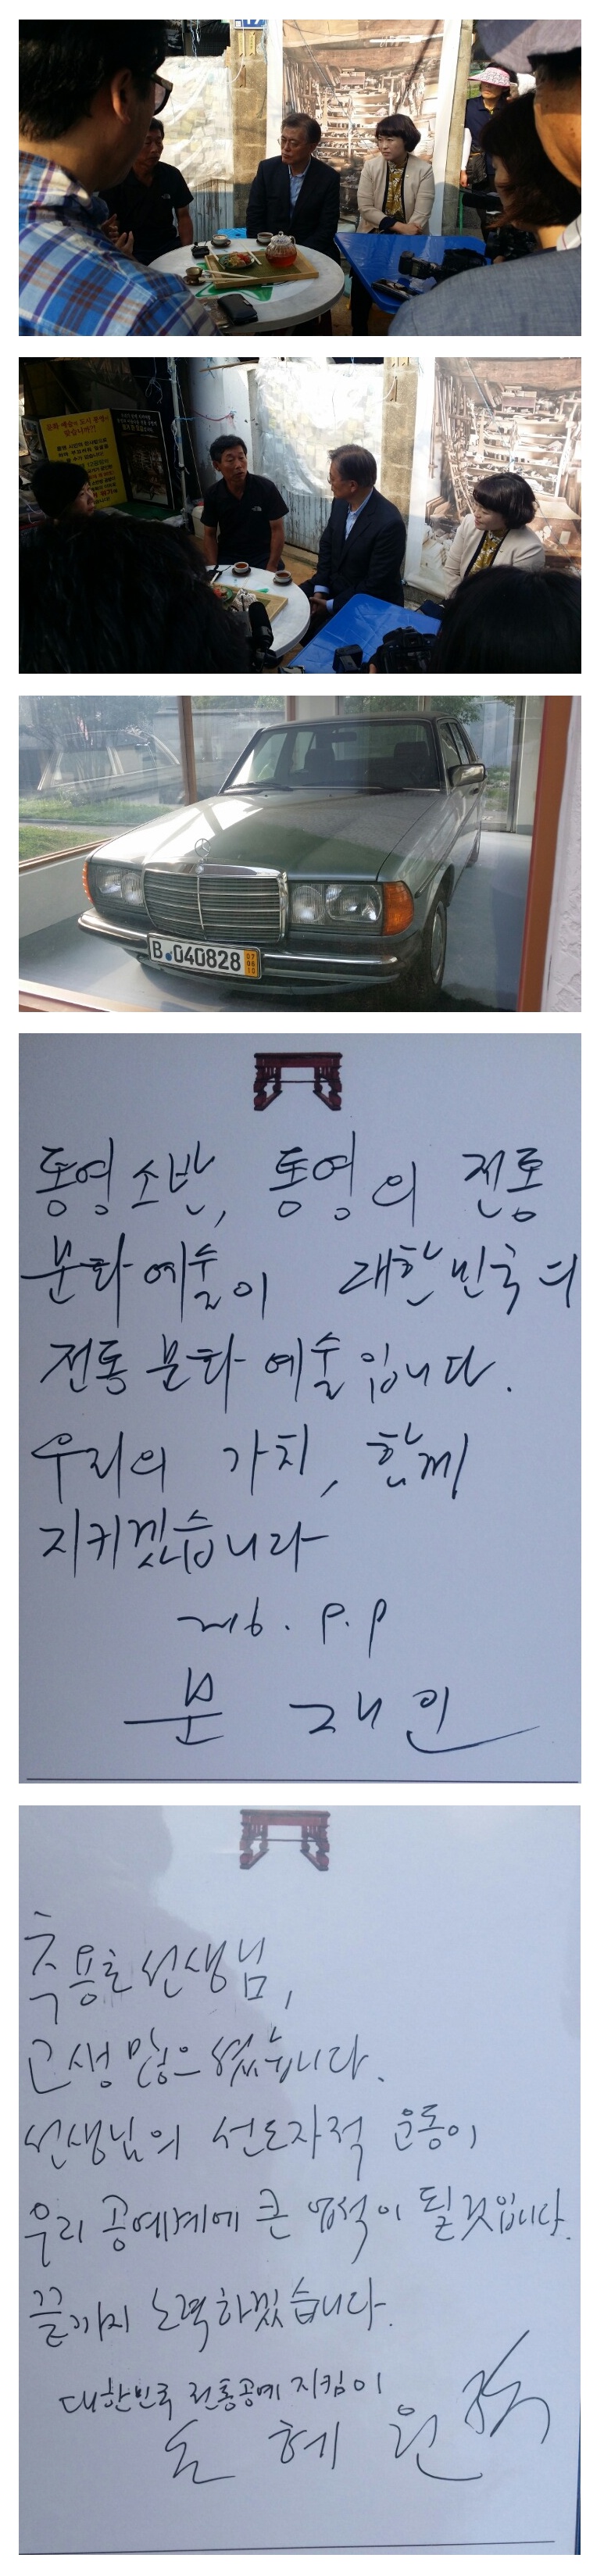 문화 예술의 도시 통영이
맞습니까?!!
B 040828
07
06
10
통영소반, 통영의 전통
문화예술이 대한민국의
전통문화예술입니다.
우리의 가치, 함께
지키겠습니다
문재인
추용호선생님,
고생 많으셨습니다.
선생님의 선도자적 운동이
우리 공예계에 큰 업적이 될것입니다.
끝까지 노력하겠습니다.
대한민국 전통공예 지킴이
손혜원